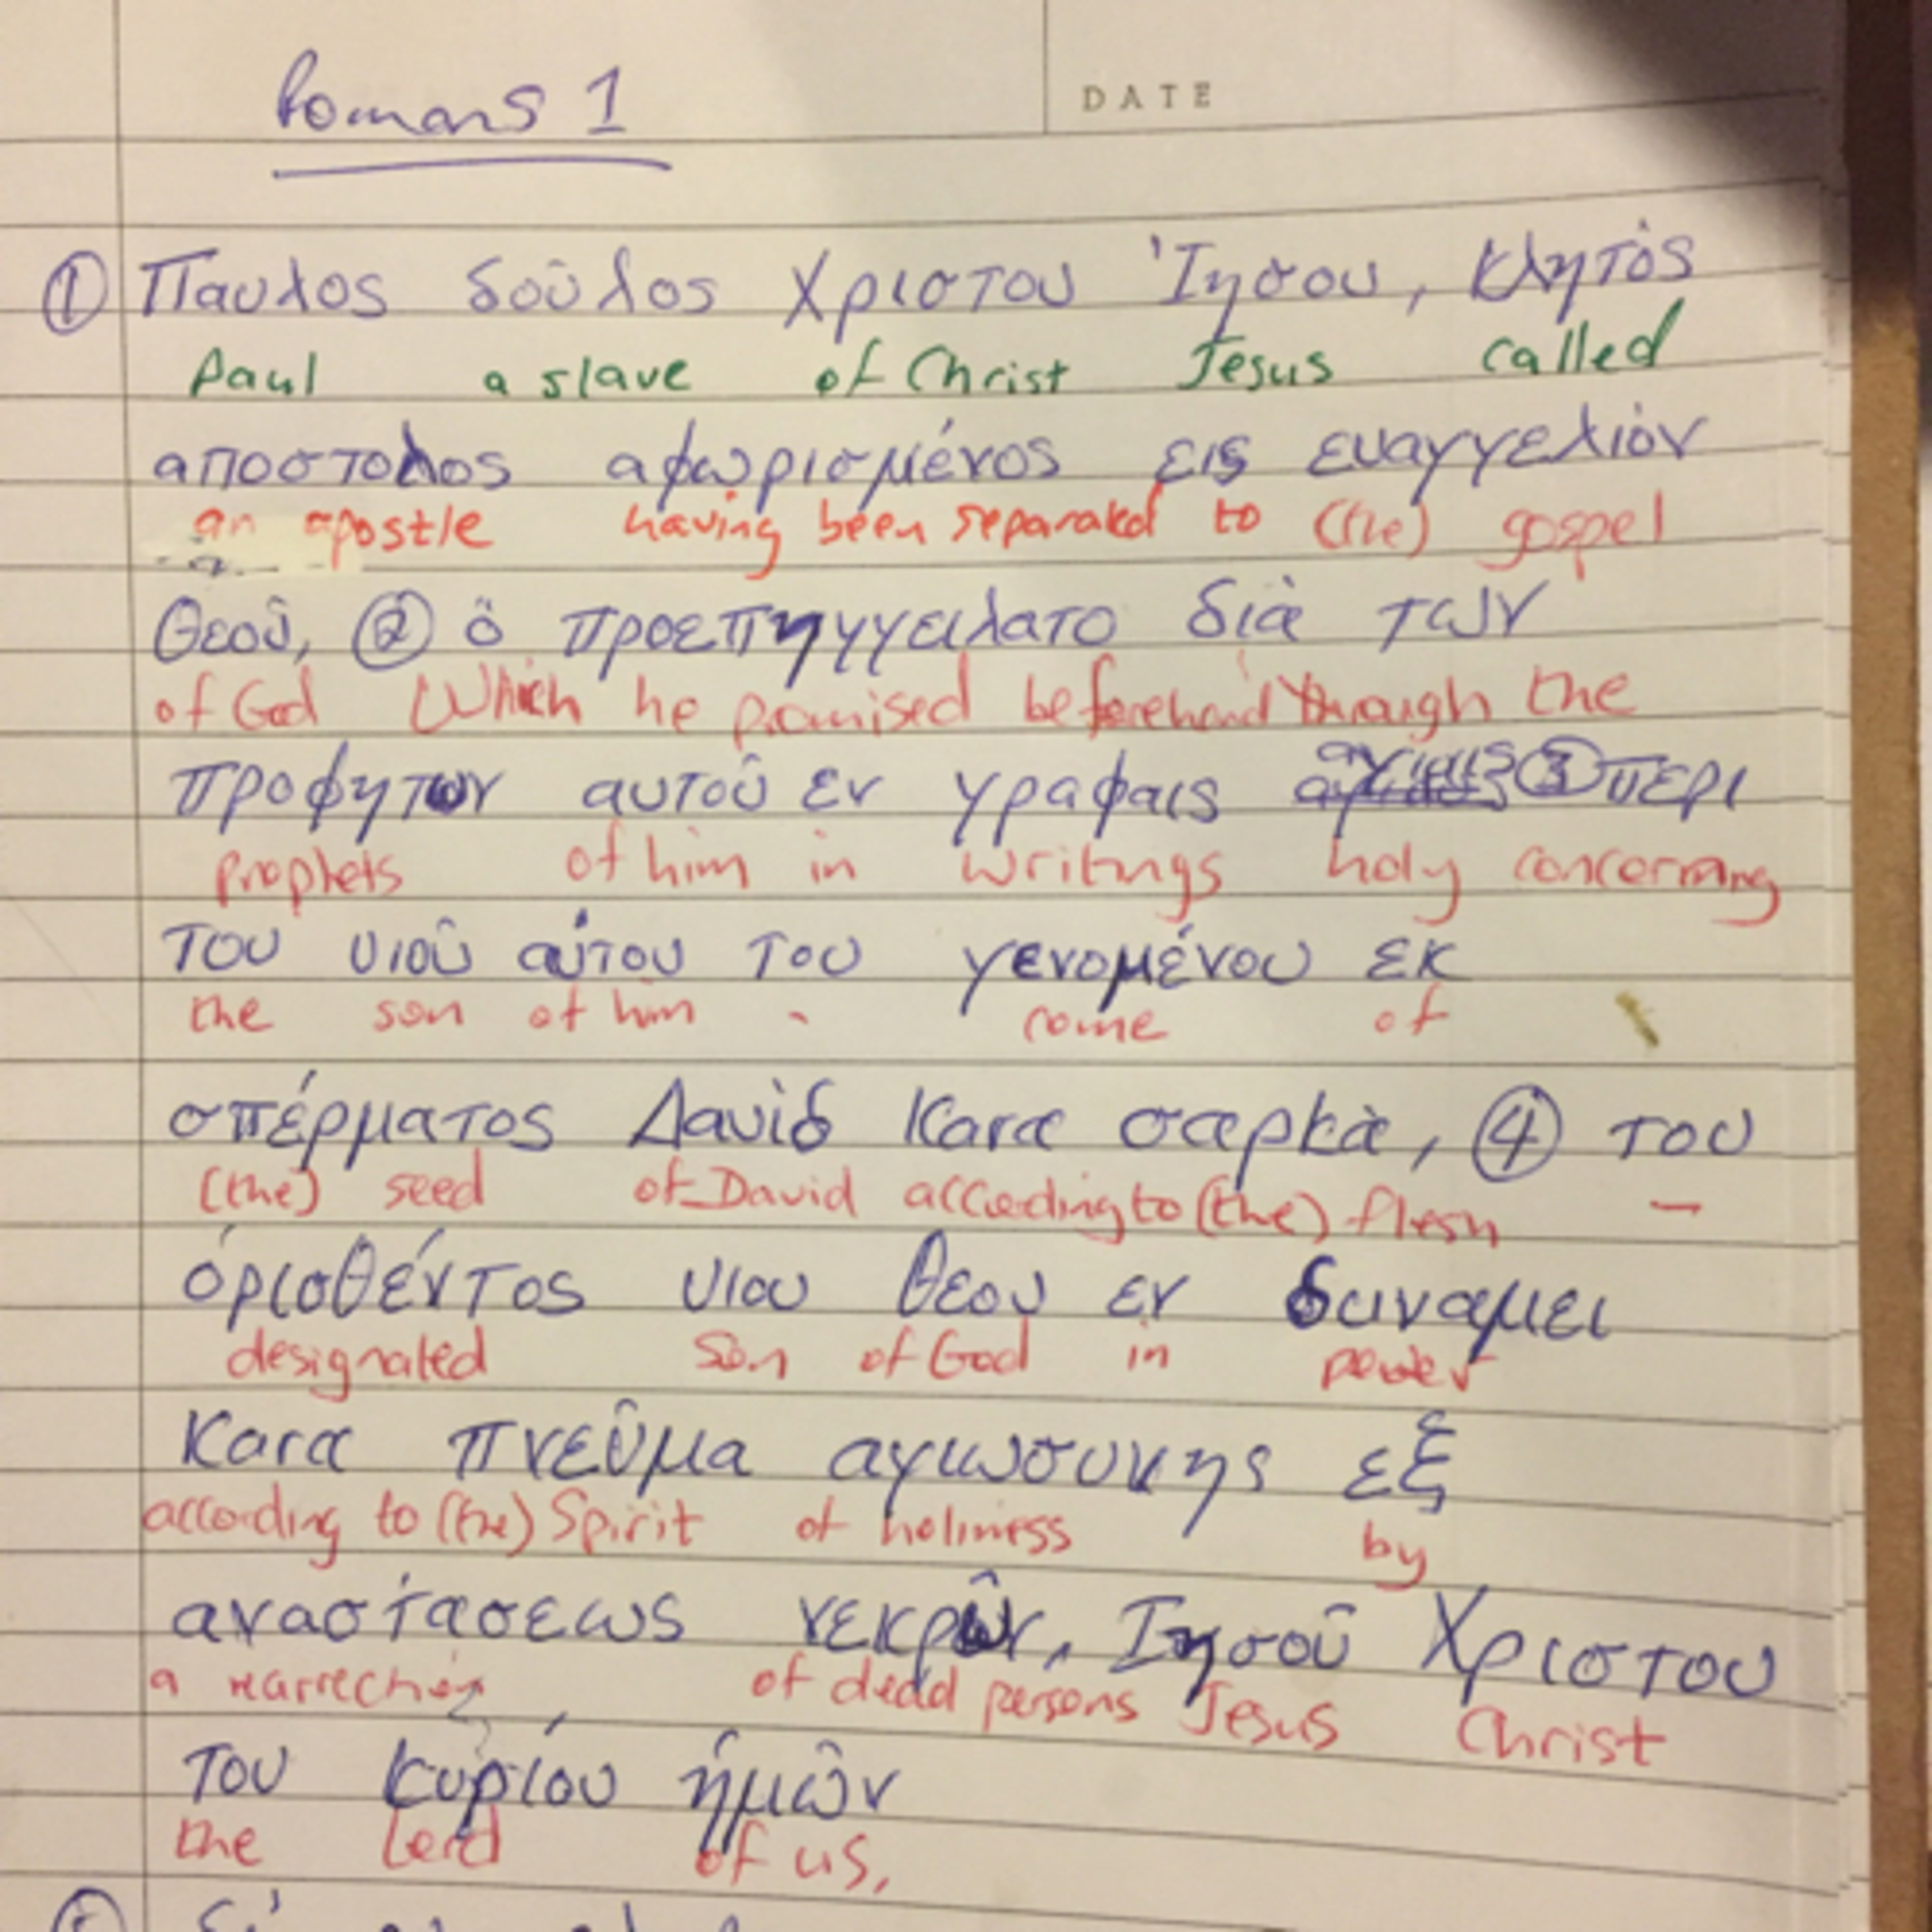 Romans 1
DATE
① Παυλος δοῦλος Χριστου Ἰησου, κλητὸς
Paul a slave of Christ Jesus called
αποστολος αφωρισμένος εις ευαγγελιόν
an apostle having been separated to (the) gospel
Θεοῦ, ② ὃ προεπηγγειλατο διὰ των
of God Which he promised beforehand through the
προφητων αυτοῦ εν γραφαις αγιαις ③ περι
prophets of him in writings holy concerning
του υιοῦ αὐτου του γενομένου εκ
the son of him - come of
σπέρματος Δαυὶδ Κατα σαρκὰ, ④ του
(the) seed of David according to (the) flesh —
ὁρισθέντος υιου θεου εν δυναμει
designated Son of God in power
Κατα πνεῦμα αγιωσυνης εξ
according to (the) Spirit of holiness by
αναστάσεως νεκρῶν, Ιησοῦ Χριστου
a resurrection of dead persons Jesus Christ
του κυρίου ἡμῶν
the Lord of us,